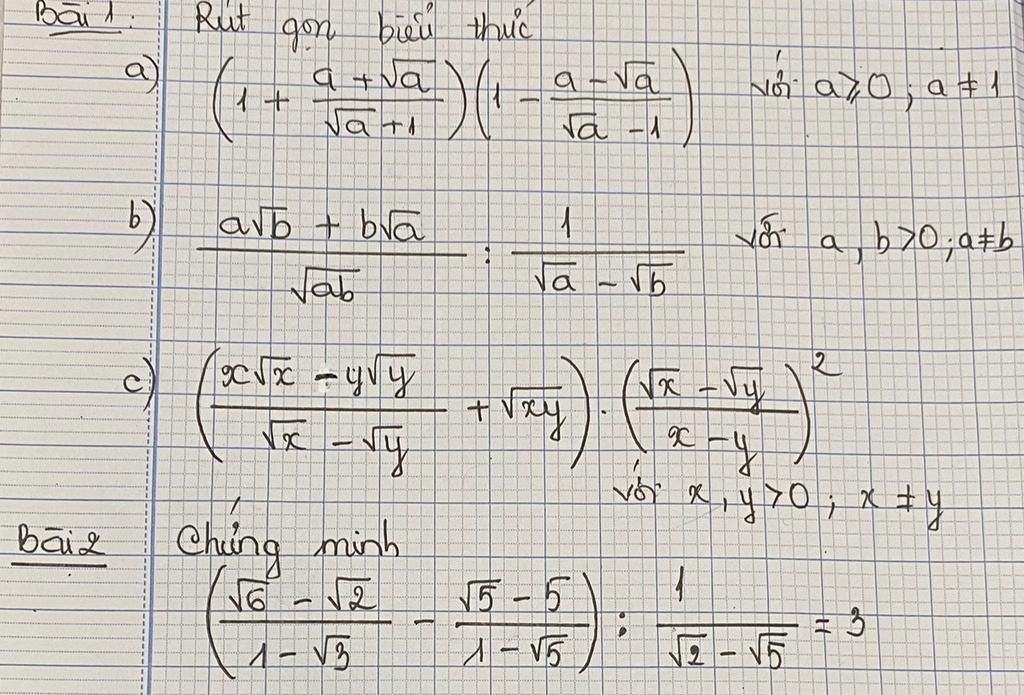 Bài 1: Rút gọn biểu thức
a) (1 + (a + √a)/(√a + 1))(1 - (a - √a)/(√a - 1)) với a ≥ 0; a ≠ 1
b) (a√b + b√a)/√ab : 1/(√a - √b) với a, b > 0; a ≠ b
c) ((x√x - y√y)/(√x - √y) + √xy) · ((√x - √y)/(x - y))²
với x, y > 0; x ≠ y
Bài 2 Chứng minh
((√6 - √2)/(1 - √3) - (√5 - 5)/(1 - √5)) : 1/(√2 - √5) = 3